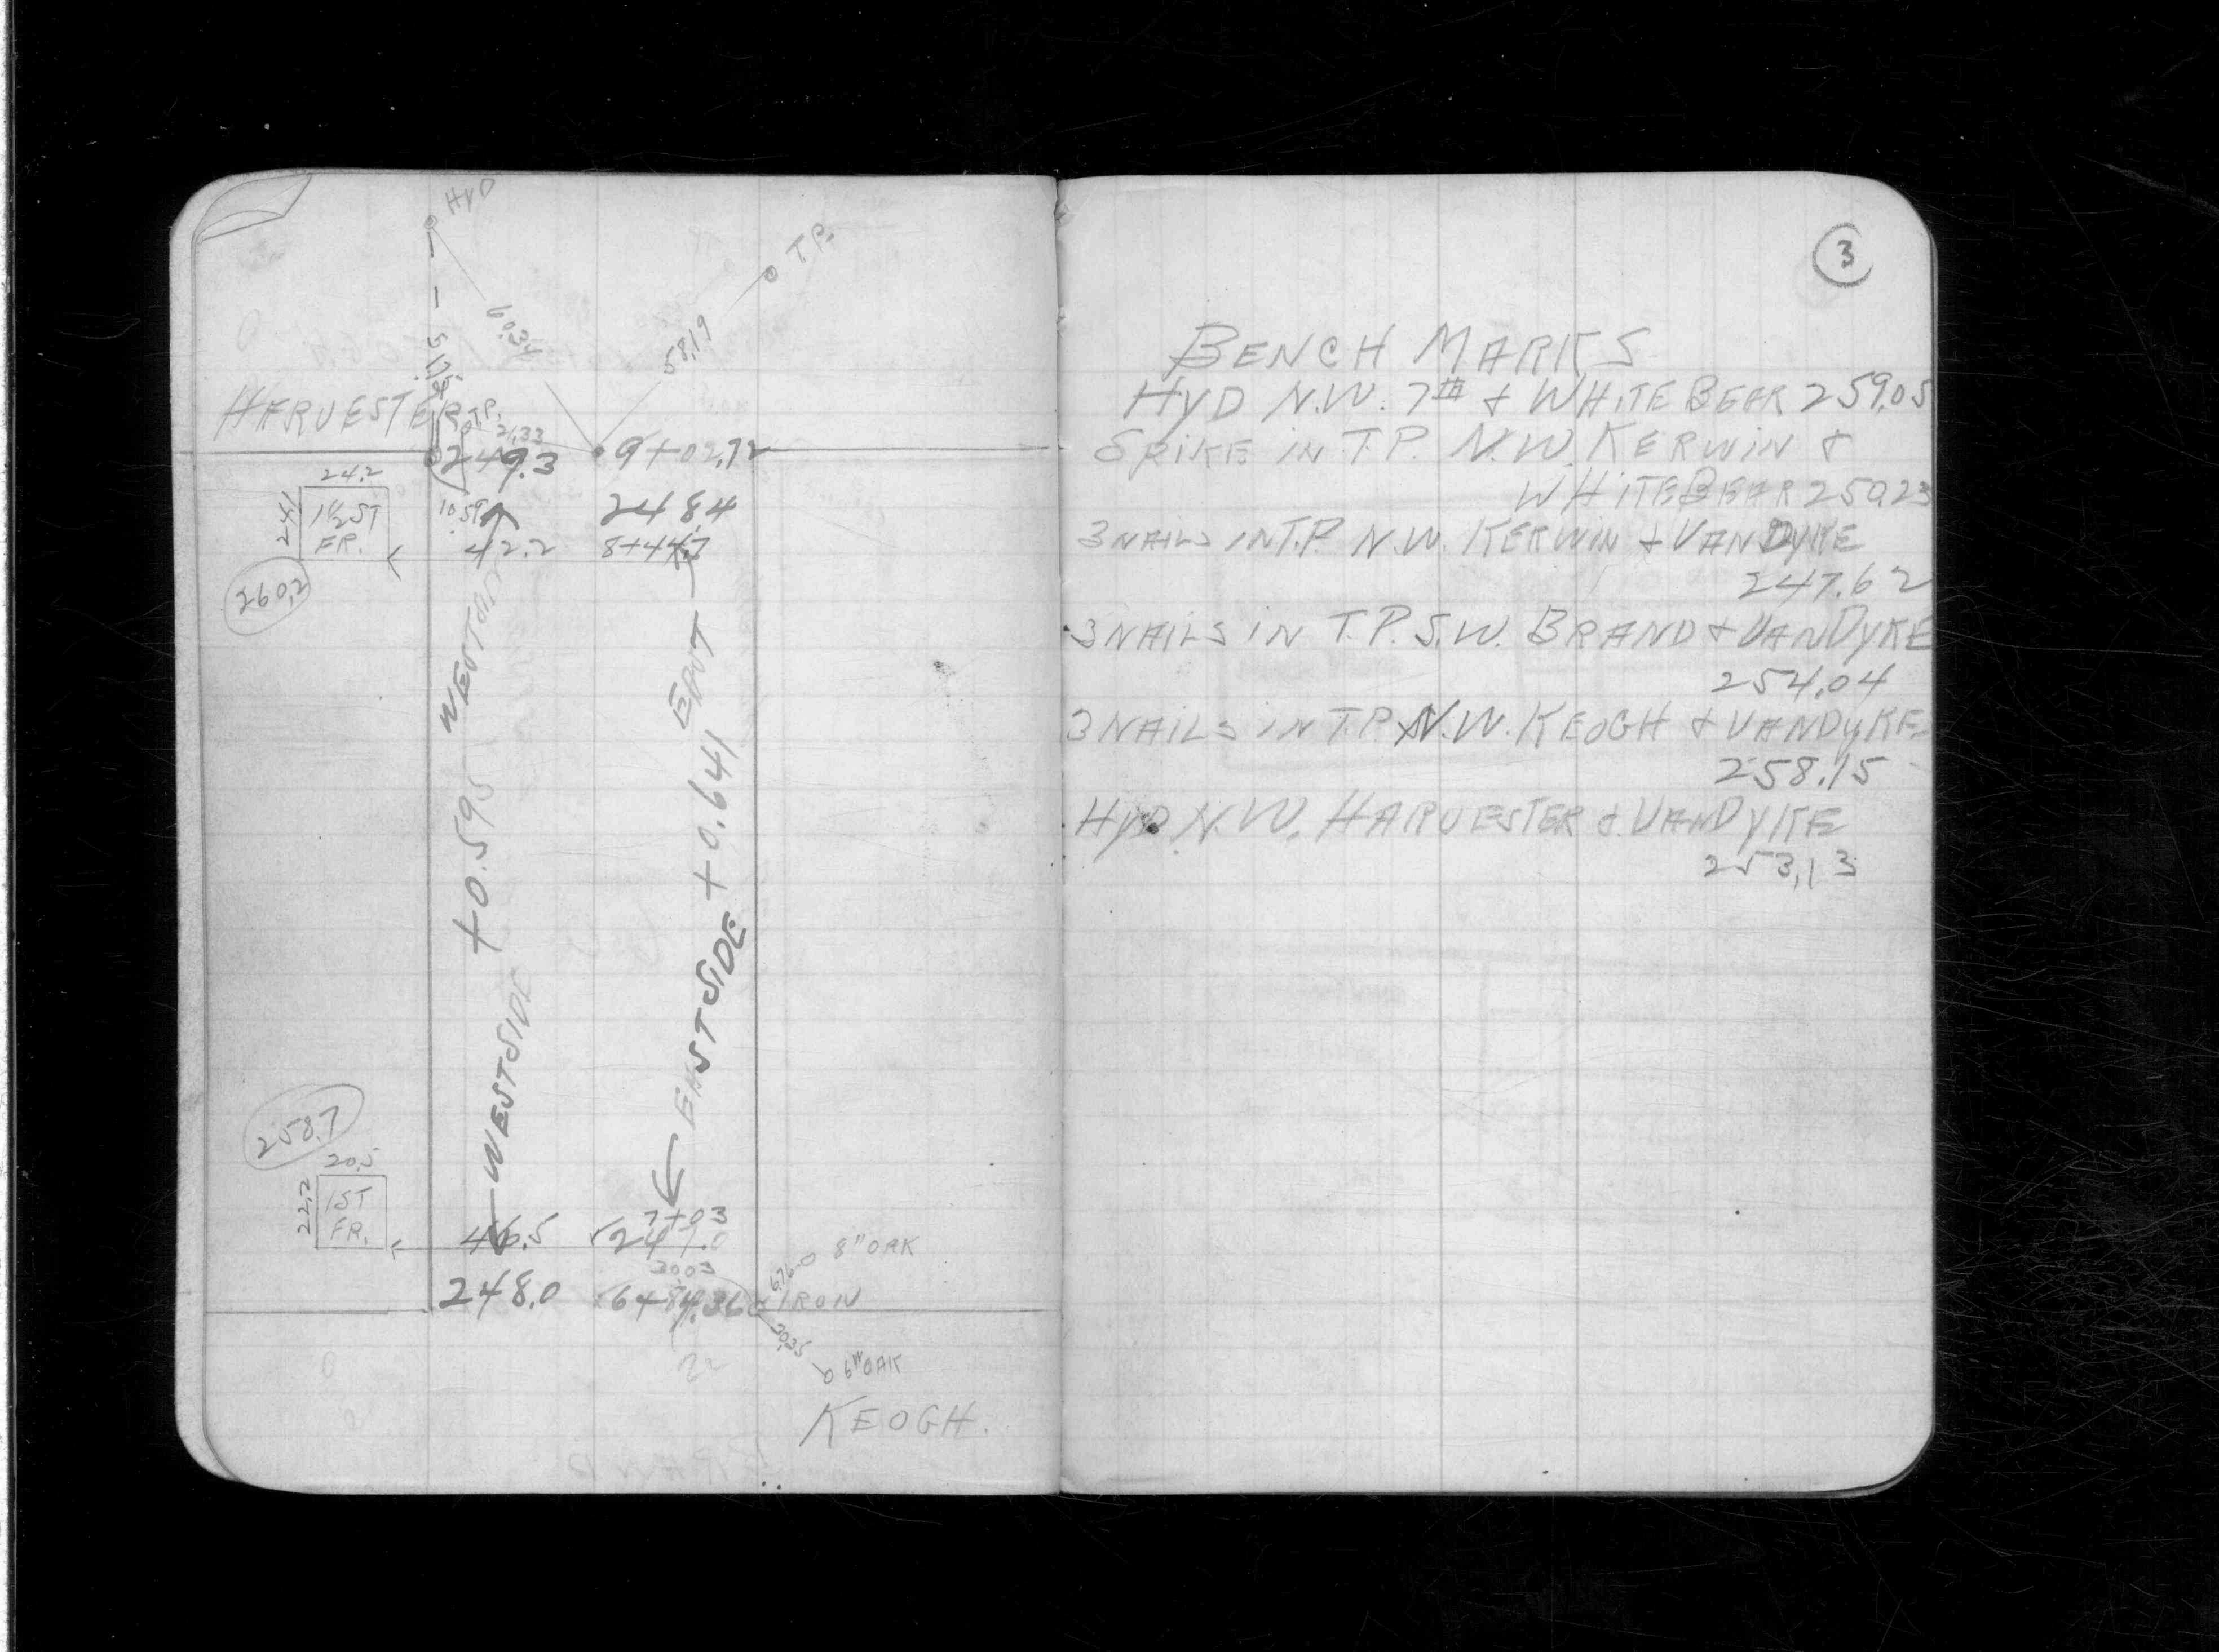 HYD
T.P.
60.34
58.19
HARVESTER
T.P.
21.33
249.3
9+02.72
24.2
24.1
1½ ST
FR.
10.59
248.4
42.2
8+44.7
260.2
WESTSIDE
+0.595
WESTSIDE
+0.641
EASTSIDE
258.7
20.5
22.2
1ST
FR.
46.5
7+03
248.0
20.03
6+84.36
IRON
8" OAK
20.35
6" OAK
KEOGH.
3
BENCH MARKS
HYD N.W. 7TH & WHITE BEAR 259.05
SPIKE IN T.P. N.W. KERWIN &
WHITE BEAR 250.23
3 NAILS IN T.P. N.W. KERWIN & VAN DYKE
247.62
3 NAILS IN T.P. S.W. BRAND & VAN DYKE
254.04
3 NAILS IN T.P. N.W. KEOGH & VAN DYKE
258.15
HYD. N.W. HARVESTER & VAN DYKE
253.13